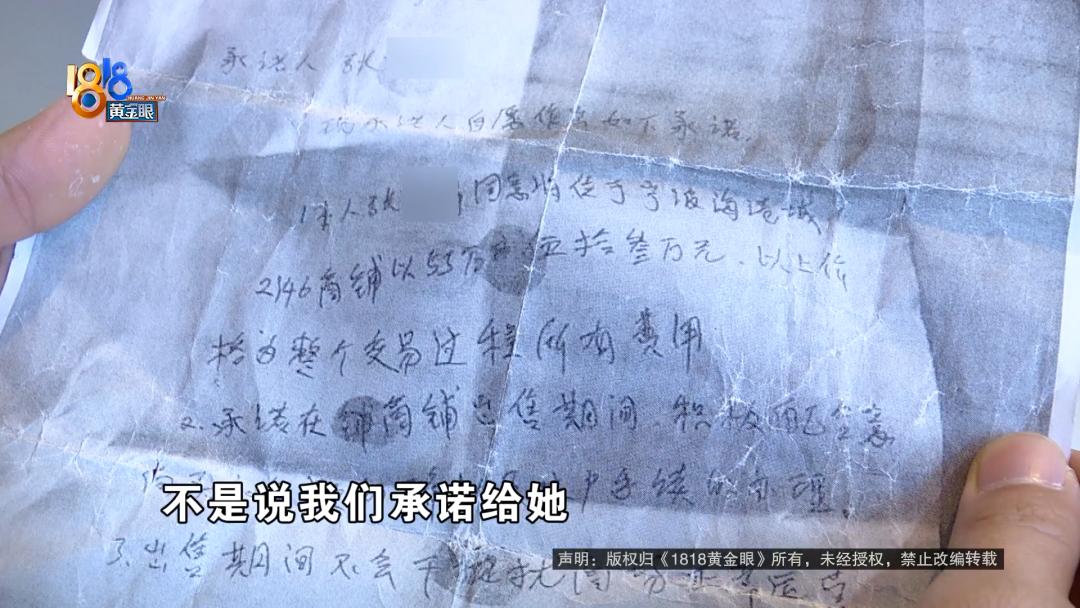 1818
HUANG JIN YAN
黄金眼
承诺人 张
现承诺人自愿作出如下承诺.
1本人张 同意将位于宁波海港城
2146商铺以53万 伍拾叁万元、以上价
格为整个交易过程所有费用
2.承诺在 商铺出售期间、积极配合
手续的办理.
3、出售期间不会干
不是说我们承诺给她
声明：版权归《1818黄金眼》所有，未经授权，禁止改编转载